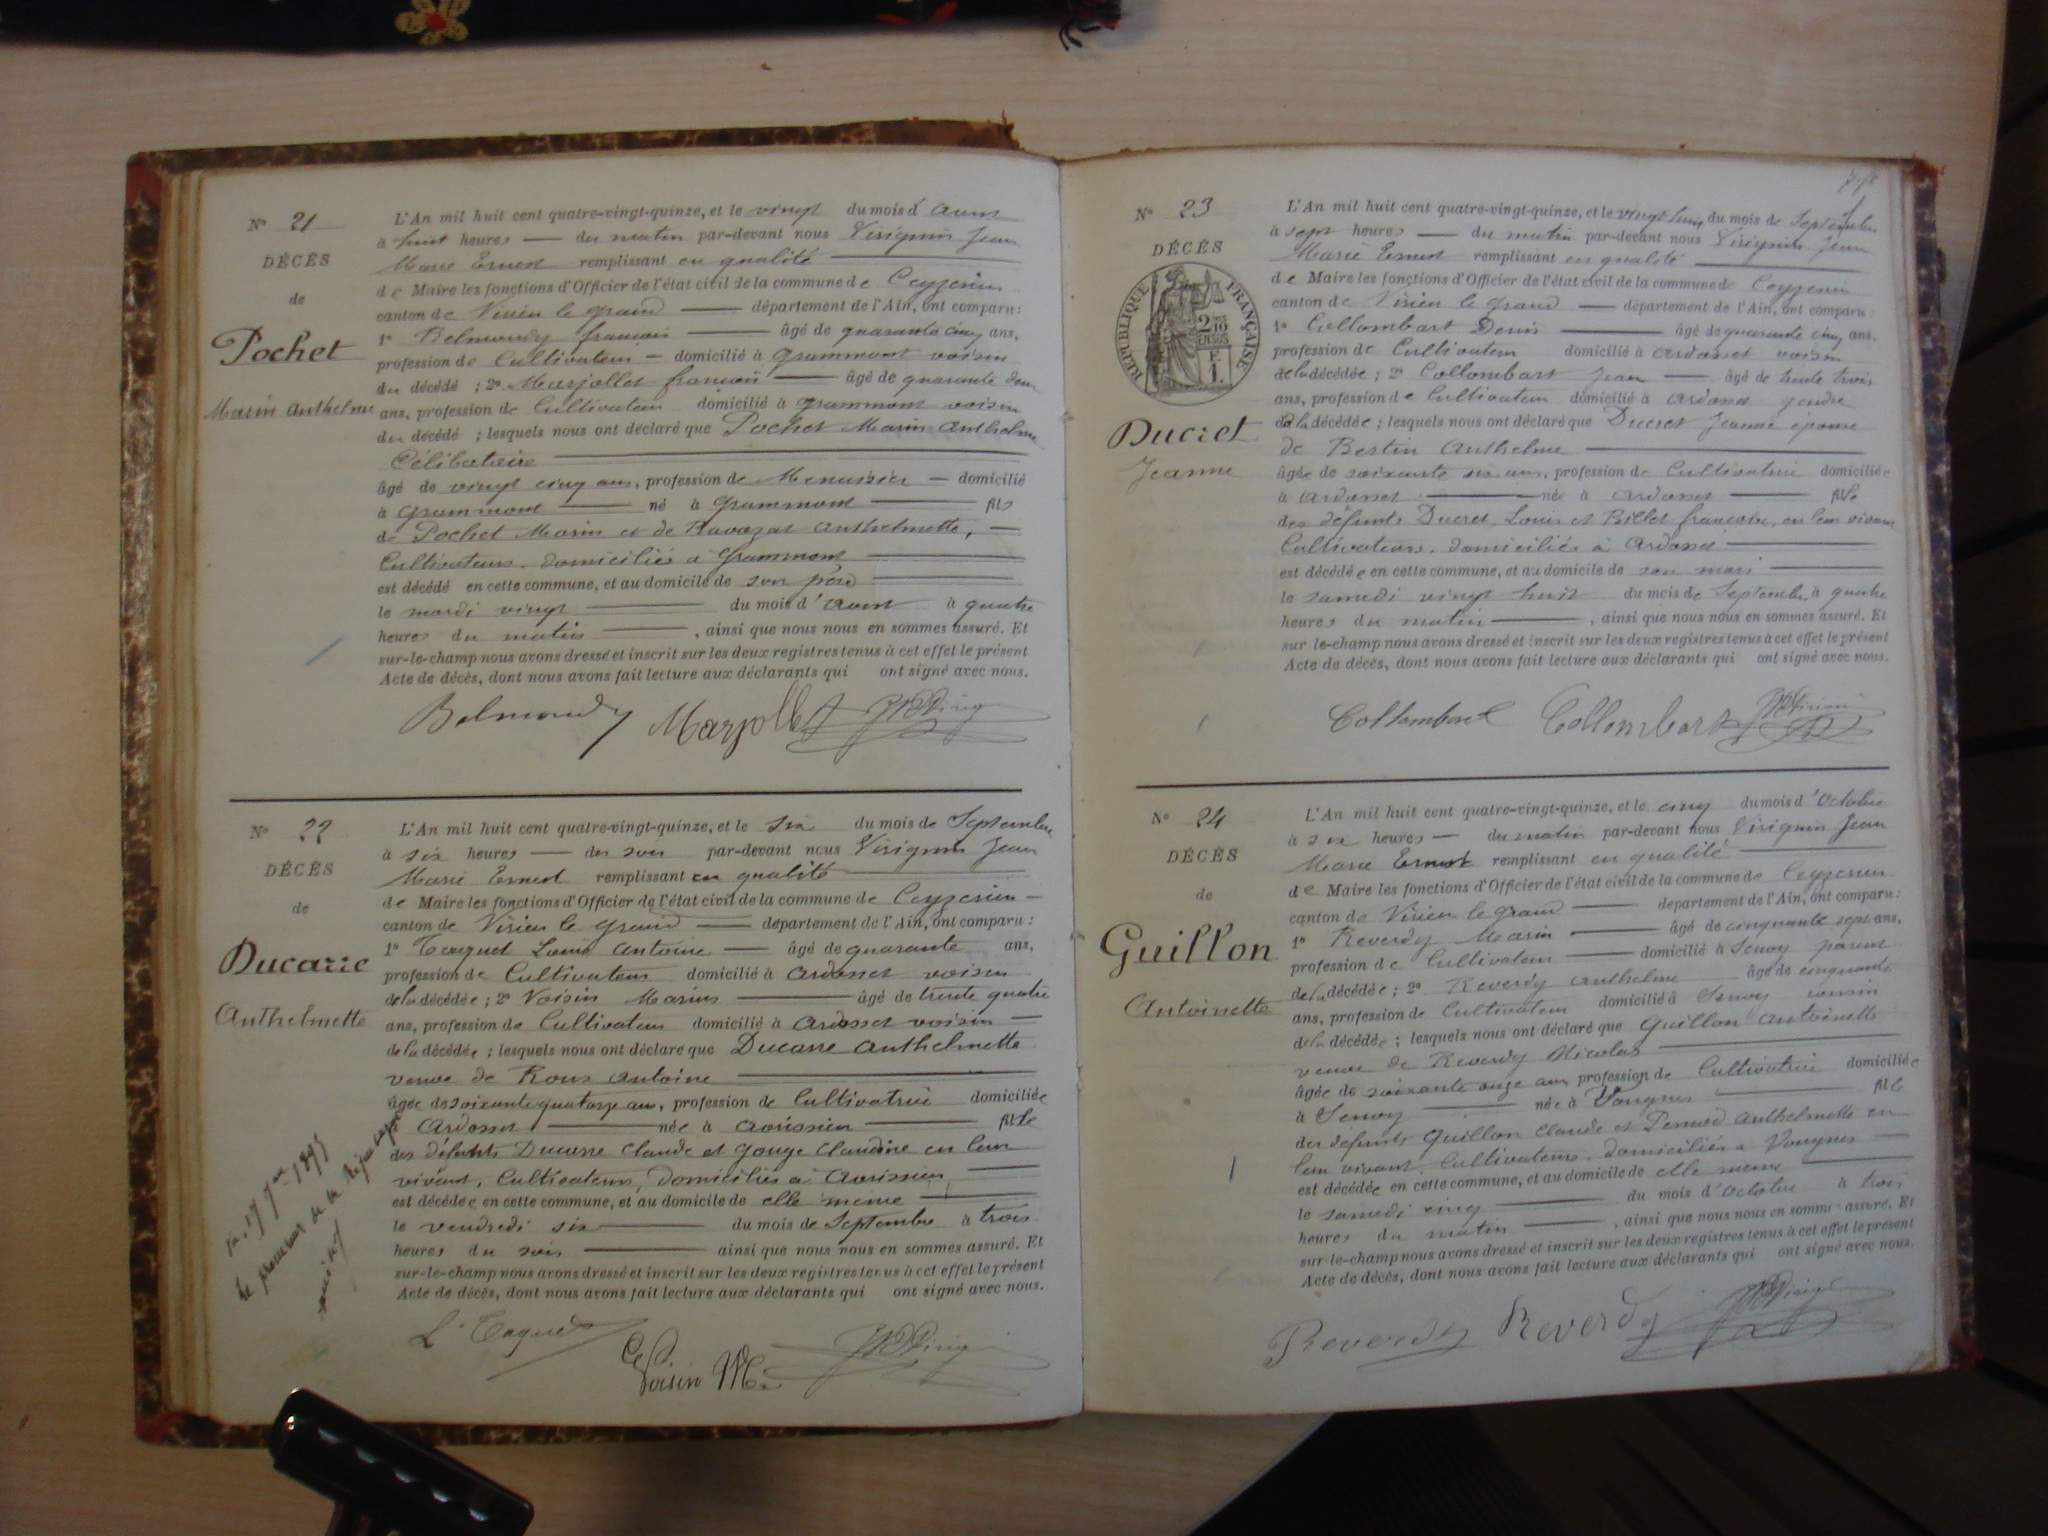 N° 21
DÉCÈS
de
Pochet
Marin Anthelme
L'An mil huit cent quatre-vingt-quinze, et le vingt du mois d'Aout
à huit heures — du matin par-devant nous Virignin Jean
Marie Ernest remplissant en qualité
de Maire les fonctions d'Officier de l'état civil de la commune de Ceyzerieu
canton de Virieu le grand — département de l'Ain, ont comparu :
1° Belmondy françois — âgé de quarante cinq ans,
profession de Cultivateur — domicilié à Grammont voisin
du décédé ; 2° Marjollet françois — âgé de quarante deux
ans, profession de Cultivateur domicilié à Grammont voisin
du décédé ; lesquels nous ont déclaré que Pochet Marin Anthelme
Célibataire
âgé de vingt cinq ans, profession de Menuisier — domicilié
à Grammont — né à Grammont — fils
de Pochet Marin et de Ravozat Anthelmette,
Cultivateurs, domiciliés à Grammont
est décédé en cette commune, et au domicile de son père
le mardi vingt — du mois d'Aout à quatre
heures du matin — , ainsi que nous nous en sommes assuré. Et
sur-le-champ nous avons dressé et inscrit sur les deux registres tenus à cet effet le présent
Acte de décès, dont nous avons fait lecture aux déclarants qui ont signé avec nous.
Belmondy Marjollet
N° 22
DÉCÈS
de
Ducarre
Anthelmette
L'An mil huit cent quatre-vingt-quinze, et le six du mois de Septembre
à six heures — du soir par-devant nous Virignin Jean
Marie Ernest remplissant en qualité
de Maire les fonctions d'Officier de l'état civil de la commune de Ceyzerieu —
canton de Virieu le Grand — département de l'Ain, ont comparu :
1° Taquet Louis Antoine — âgé de quarante ans,
profession de Cultivateur domicilié à Ardosset voisin
de la décédée ; 2° Voisin Marius — âgé de trente quatre
ans, profession de Cultivateur domicilié à Ardosset voisin —
de la décédée ; lesquels nous ont déclaré que Ducarre Anthelmette
veuve de Roux Antoine
âgée de soixante quatorze ans, profession de Cultivatrice domiciliée
à Ardosset — née à Avrissieu — fille
des défunts Ducarre Claude et Gouge Claudine en leur
vivant, Cultivateurs, domiciliés à Avrissieu
est décédée en cette commune, et au domicile de elle même
le vendredi six — du mois de Septembre à trois
heures du soir — ainsi que nous nous en sommes assuré. Et
sur-le-champ nous avons dressé et inscrit sur les deux registres tenus à cet effet le présent
Acte de décès, dont nous avons fait lecture aux déclarants qui ont signé avec nous.
1895
Le procureur de la République
L. Taquet
Voisin M.
N° 23
DÉCÈS
RÉPUBLIQUE FRANÇAISE
Ducret
Jeanne
L'An mil huit cent quatre-vingt-quinze, et le vingt huit du mois de Septembre
à sept heures — du matin par-devant nous Virignin Jean
Marie Ernest remplissant en qualité
de Maire les fonctions d'Officier de l'état civil de la commune de Ceyzerieu
canton de Virieu le Grand — département de l'Ain, ont comparu :
1° Collombart Denis — âgé de quarante cinq ans,
profession de Cultivateur domicilié à Ardosset voisin
de la décédée ; 2° Collombart Jean — âgé de trente trois
ans, profession de Cultivateur domicilié à Ardosset gendre
de la décédée ; lesquels nous ont déclaré que Ducret Jeanne épouse
de Bertin Anthelme
âgée de soixante six ans, profession de Cultivatrice domiciliée
à Ardosset — née à Ardosset — fille
des défunts Ducret Louis et Billet françoise, en leur vivant
Cultivateurs, domiciliés à Ardosset
est décédée en cette commune, et au domicile de son mari
le samedi vingt huit du mois de Septembre à quatre
heures du matin — , ainsi que nous nous en sommes assuré. Et
sur-le-champ nous avons dressé et inscrit sur les deux registres tenus à cet effet le présent
Acte de décès, dont nous avons fait lecture aux déclarants qui ont signé avec nous.
Collombart Collombart
N° 24
DÉCÈS
de
Guillon
Antoinette
L'An mil huit cent quatre-vingt-quinze, et le cinq du mois d'Octobre
à six heures — du matin par-devant nous Virignin Jean
Marie Ernest remplissant en qualité
de Maire les fonctions d'Officier de l'état civil de la commune de Ceyzerieu
canton de Virieu le Grand — département de l'Ain, ont comparu :
1° Reverdy Marin — âgé de cinquante sept ans,
profession de Cultivateur — domicilié à Senoy parent
de la décédée ; 2° Reverdy Anthelme — âgé de cinquante
ans, profession de Cultivateur domicilié à Senoy cousin
de la décédée ; lesquels nous ont déclaré que Guillon Antoinette
veuve de Reverdy Nicolas
âgée de soixante onze ans profession de Cultivatrice domiciliée
à Senoy — née à Vongnes — fille
des défunts Guillon Claude et Pernod Anthelmette en
leur vivant, Cultivateurs, domiciliés à Vongnes —
est décédée en cette commune, et au domicile de elle même
le samedi cinq — du mois d'Octobre à trois
heures du matin — , ainsi que nous nous en sommes assuré. Et
sur-le-champ nous avons dressé et inscrit sur les deux registres tenus à cet effet le présent
Acte de décès, dont nous avons fait lecture aux déclarants qui ont signé avec nous.
Reverdy Reverdy